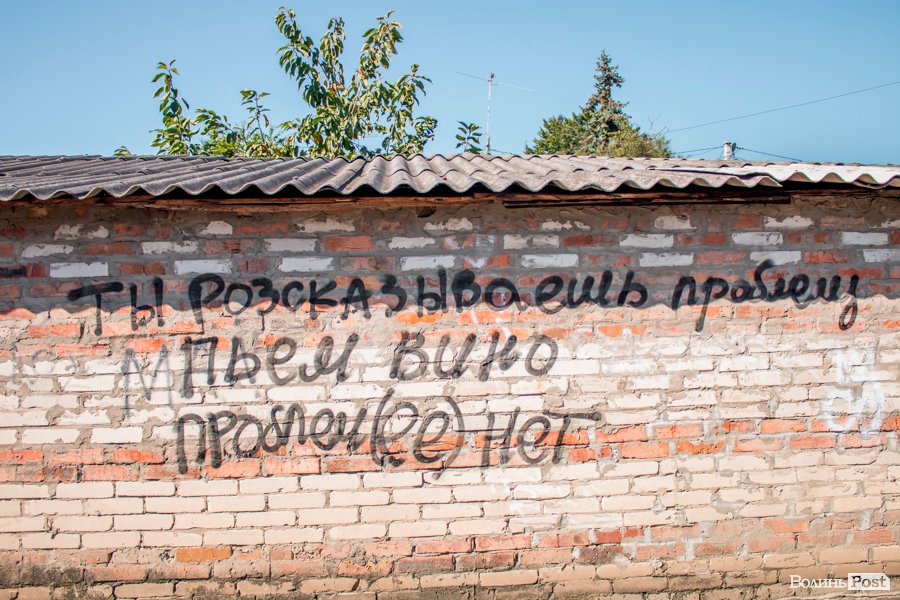 Ты розсказываешь проблему
М пьем вино
проблем(ее) нет
ВолиньPost